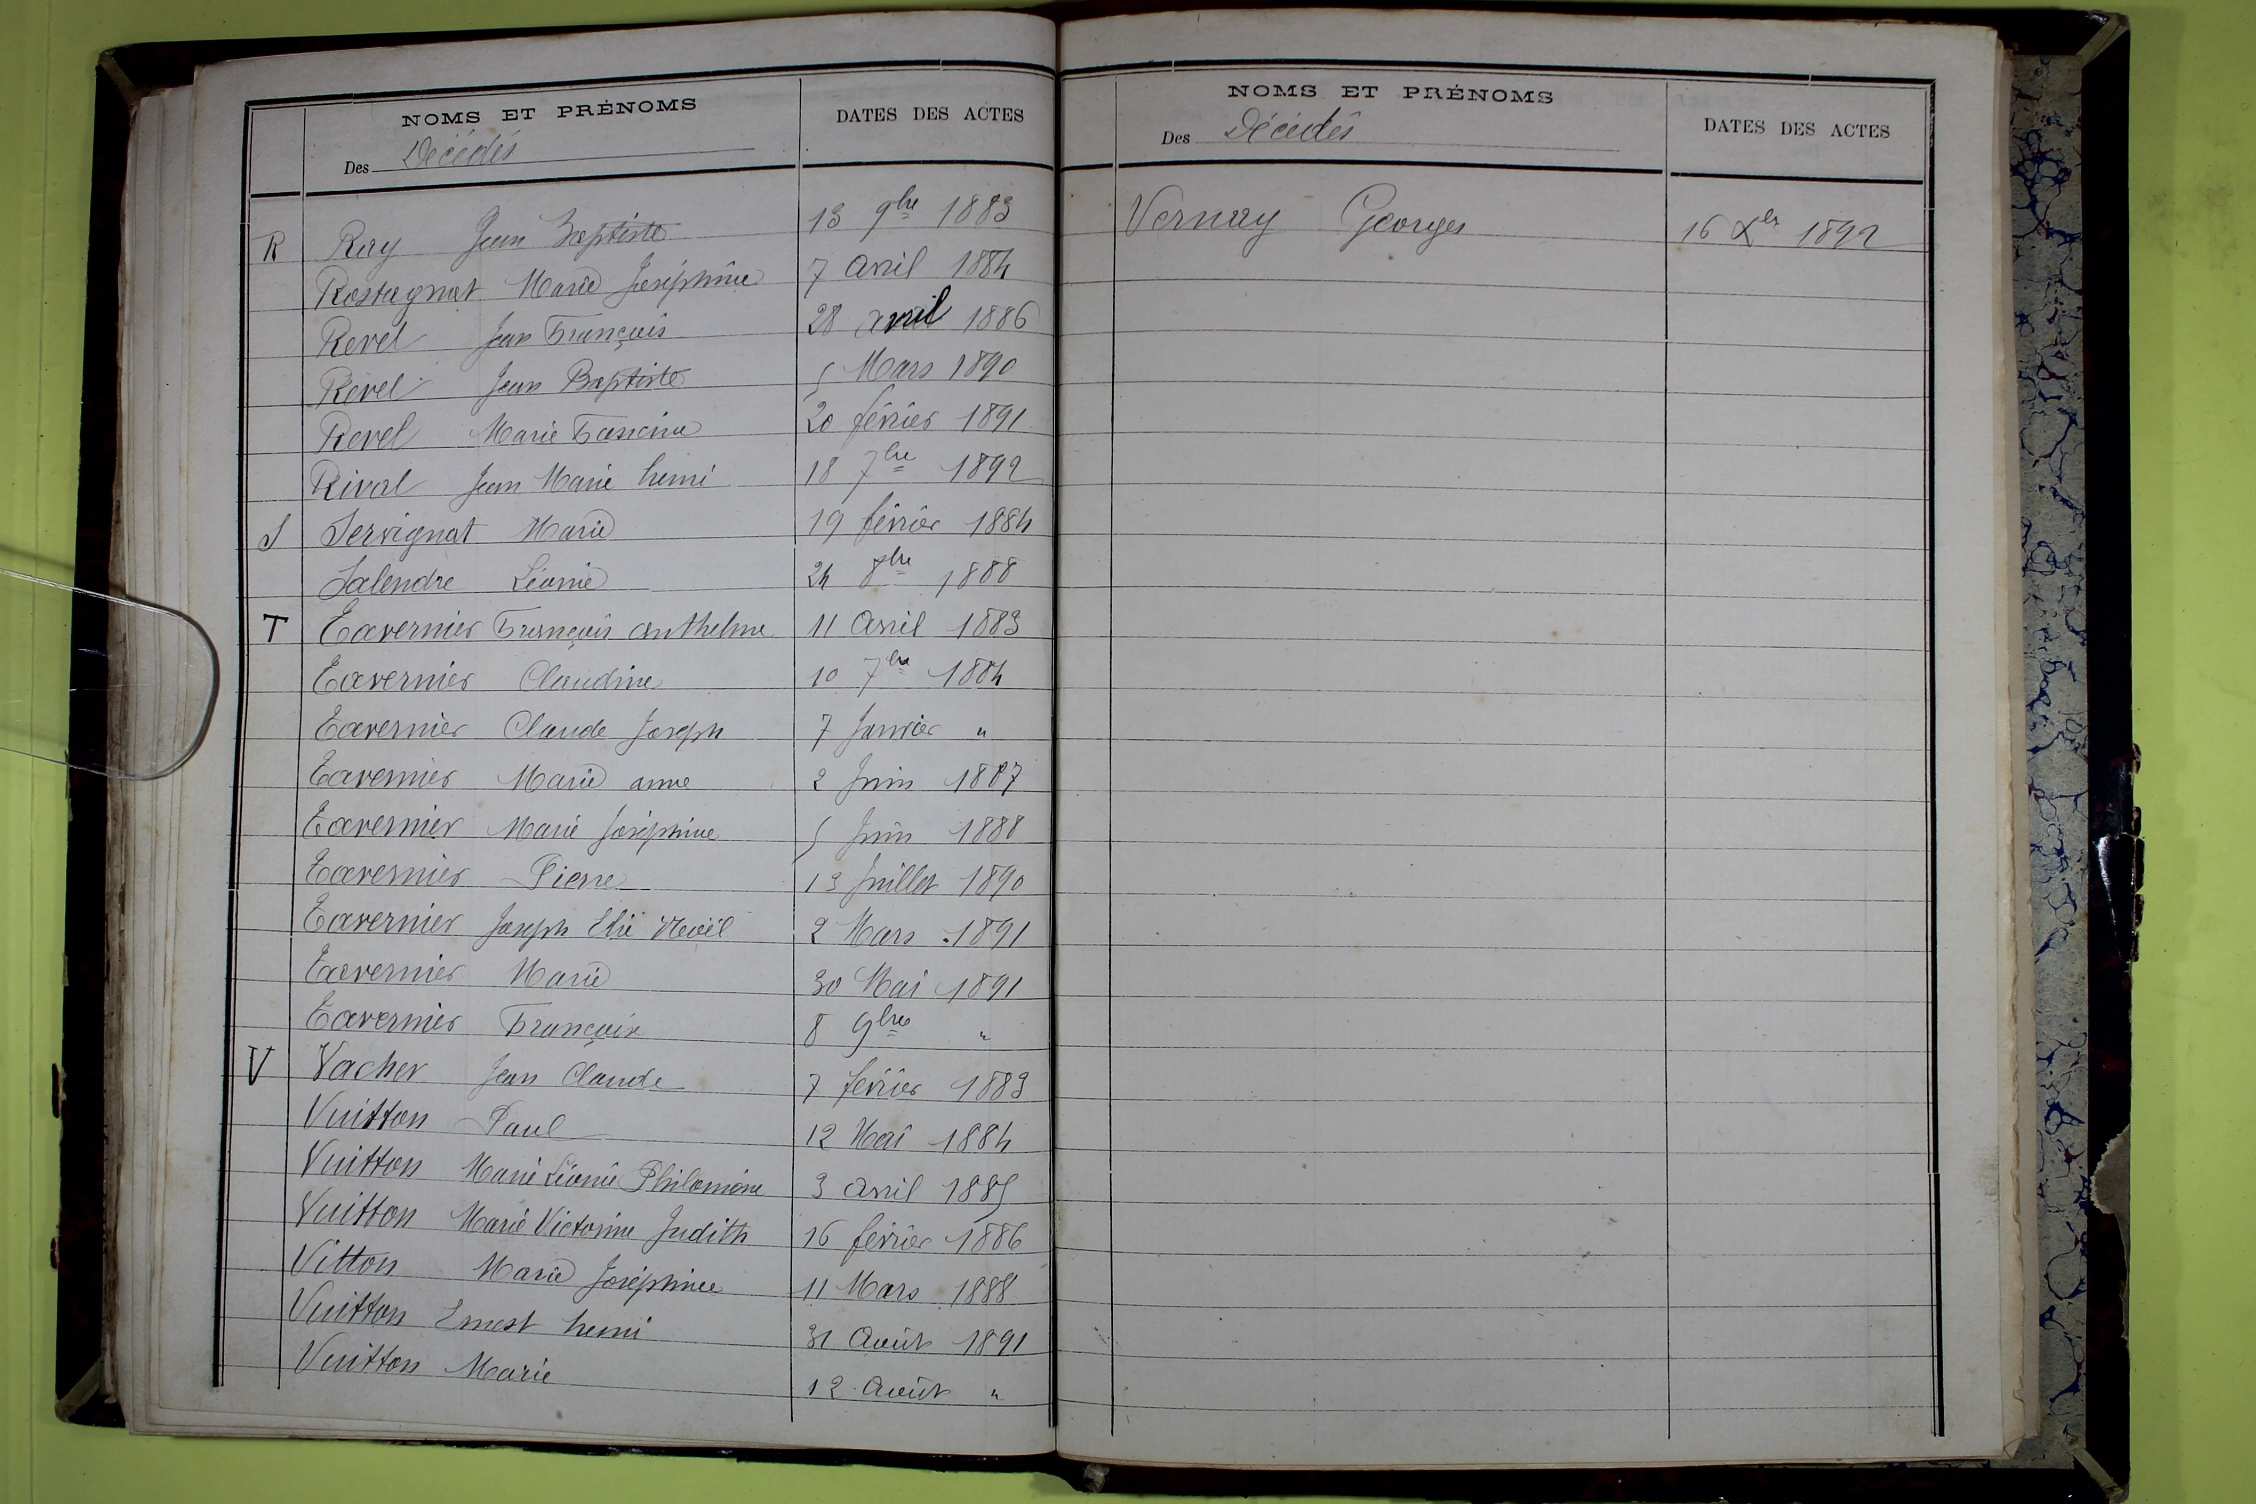 NOMS ET PRÉNOMS DATES DES ACTES
Des Décédés
R Ray Jean Baptiste 13 9bre 1883
Rostagnat Marie Joséphine 7 avril 1884
Revel Jean François 28 avril 1886
Revel Jean Baptiste 5 Mars 1890
Revel Marie Fransine 20 février 1891
Rival Jean Marie henri 18 7bre 1892
S Servignat Marie 19 février 1884
Salendre Léonie 24 8bre 1888
T Tavernier François anthelme 11 avril 1883
Tavernier Claudine 10 7bre 1884
Tavernier Claude Joseph 7 Janvier "
Tavernier Marie anne 2 Juin 1887
Tavernier Marie Joséphine 5 Juin 1888
Tavernier Pierre 13 Juillet 1890
Tavernier Joseph Elie Noël 2 Mars 1891
Tavernier Marie 30 Mai 1891
Tavernier François 8 9bre "
V Vacher Jean Claude 7 février 1883
Vuitton Paul 12 Mai 1884
Vuitton Marie Léonie Philomène 3 avril 1885
Vuitton Marie Victorine Judith 16 février 1886
Vitton Marie Joséphine 11 Mars 1888
Vuitton Ernest henri 31 Août 1891
Vuitton Marie 12 Août "
NOMS ET PRÉNOMS DATES DES ACTES
Des Décédés
Vernay Georges 16 Xbr 1892